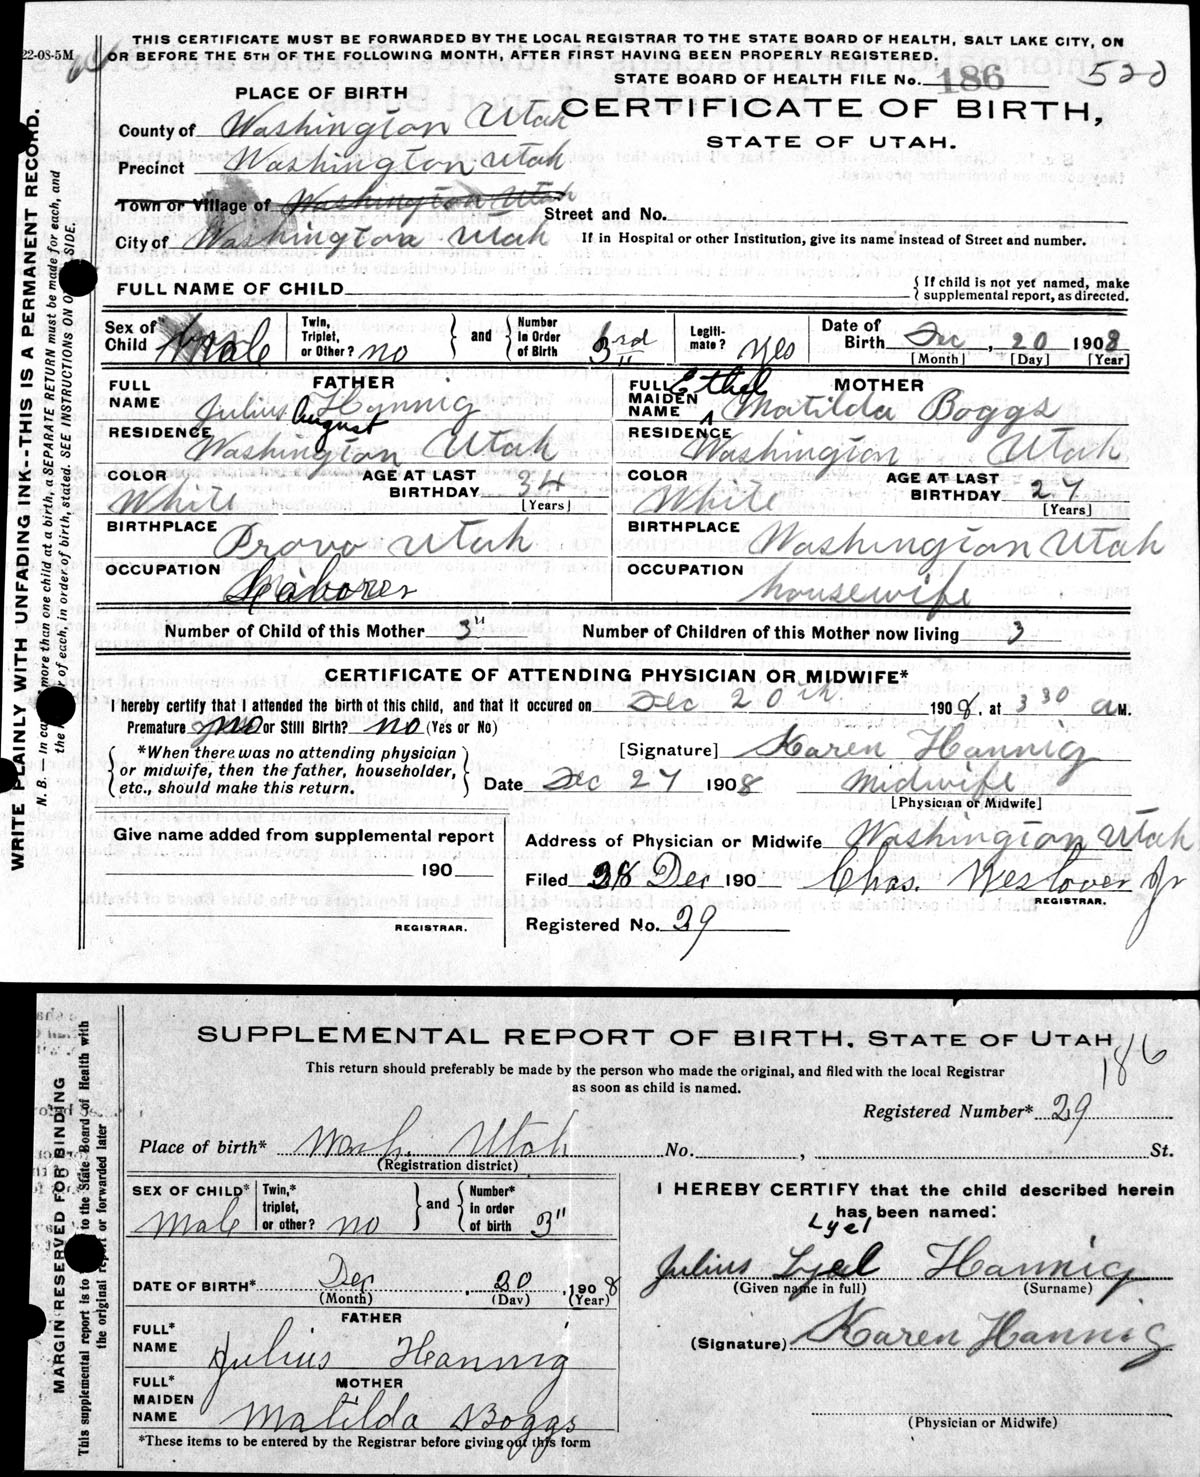 THIS CERTIFICATE MUST BE FORWARDED BY THE LOCAL REGISTRAR TO THE STATE BOARD OF HEALTH, SALT LAKE CITY, ON
OR BEFORE THE 5TH OF THE FOLLOWING MONTH, AFTER FIRST HAVING BEEN PROPERLY REGISTERED.
22-08-5M
STATE BOARD OF HEALTH FILE No. 186 520
PLACE OF BIRTH
CERTIFICATE OF BIRTH,
STATE OF UTAH.
County of Washington Utah
Precinct Washington Utah
Town or Village of Washington Utah
Street and No.
City of Washington Utah
If in Hospital or other Institution, give its name instead of Street and number.
FULL NAME OF CHILD
{ If child is not yet named, make
supplemental report, as directed.
Sex of Child Male
Twin, Triplet, or Other? no } and { Number in Order of Birth 3rd
Legiti-mate? yes
Date of Birth Dec, 20 1908
[Month] [Day] [Year]
FATHER
FULL NAME Julius August Hannig
RESIDENCE Washington Utah
COLOR White
AGE AT LAST BIRTHDAY 34
[Years]
BIRTHPLACE Provo Utah
OCCUPATION Laborer
MOTHER
FULL MAIDEN NAME Ethel Matilda Boggs
RESIDENCE Washington Utah
COLOR White
AGE AT LAST BIRTHDAY 27
[Years]
BIRTHPLACE Washington Utah
OCCUPATION housewife
Number of Child of this Mother 3"
Number of Children of this Mother now living 3
CERTIFICATE OF ATTENDING PHYSICIAN OR MIDWIFE*
I hereby certify that I attended the birth of this child, and that it occured on Dec 20th 1908, at 3 30 a M.
Premature no or Still Birth? no (Yes or No)
{ *When there was no attending physician
or midwife, then the father, householder,
etc., should make this return. }
[Signature] Karen Hannig
Date Dec 27 1908 Midwife
[Physician or Midwife]
Give name added from supplemental report
190
REGISTRAR.
Address of Physician or Midwife Washington Utah
Filed 28 Dec 190 Chas. Westover Jr
REGISTRAR.
Registered No. 29
WRITE PLAINLY WITH UNFADING INK--THIS IS A PERMANENT RECORD.
N. B. — In ca more than one child at a birth, a SEPARATE RETURN must be made for each, and
the r of each, in order of birth, stated. SEE INSTRUCTIONS ON SIDE.
SUPPLEMENTAL REPORT OF BIRTH, STATE OF UTAH
186
This return should preferably be made by the person who made the original, and filed with the local Registrar
as soon as child is named.
Registered Number* 29
Place of birth* Wash. Utah No. , St.
(Registration district)
SEX OF CHILD* Male
Twin,* triplet, or other? no } and { Number* in order of birth 3"
DATE OF BIRTH* Dec, 20, 1908
(Month) (Day) (Year)
FATHER
FULL* NAME Julius Hannig
MOTHER
FULL* MAIDEN NAME Matilda Boggs
*These items to be entered by the Registrar before giving out this form
I HEREBY CERTIFY that the child described herein
has been named:
Lyel
Julius Lyel Hannig
(Given name in full) (Surname)
(Signature) Karen Hannig
(Physician or Midwife)
MARGIN RESERVED FOR BINDING
This supplemental report is to to the State Board of Health with
the original report or forwarded later